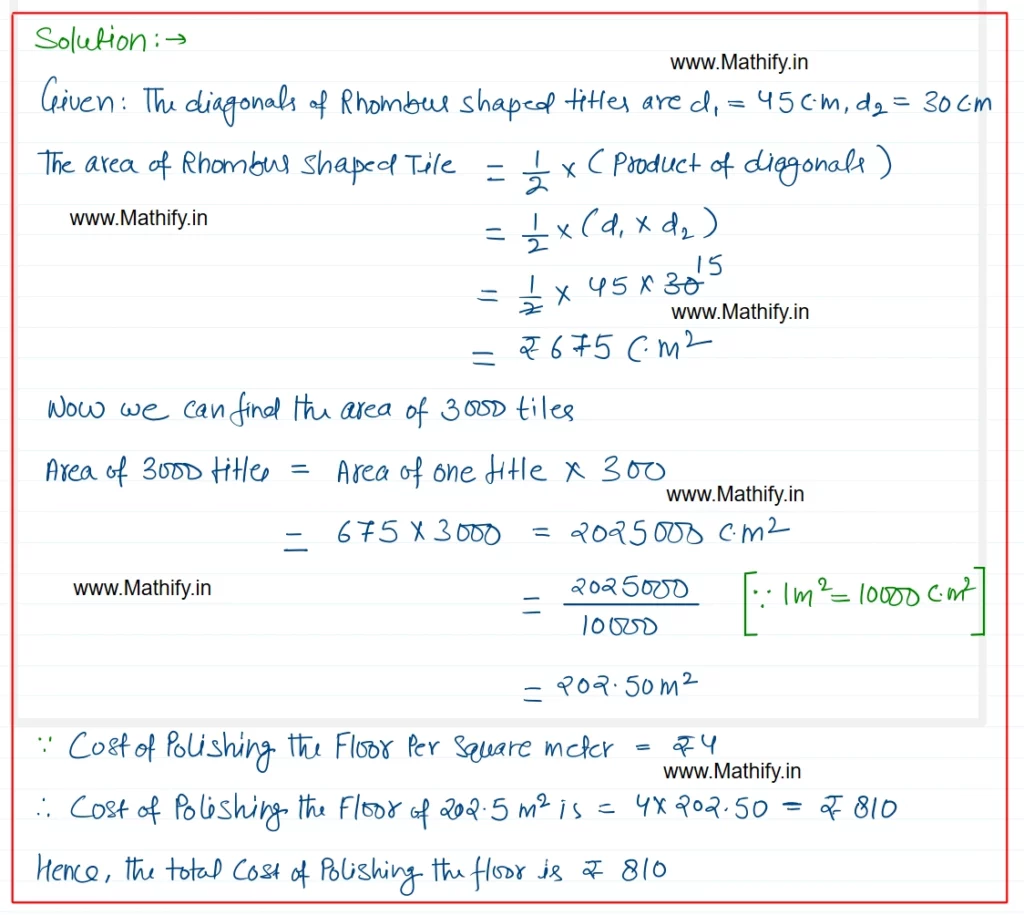 Solution:→
www.Mathify.in
Given: The diagonals of Rhombus shaped titles are d₁ = 45 C.m, d₂ = 30 C.m
The area of Rhombus shaped Tile = 1/2 × (Product of diagonals)
www.Mathify.in
= 1/2 × (d₁ × d₂)
= 1/2 × 45 × 30 15
www.Mathify.in
= ₹ 675 C.m²
Now we can find the area of 3000 tiles
Area of 3000 titles = Area of one title × 300
www.Mathify.in
= 675 × 3000 = 2025000 C.m²
www.Mathify.in
= 2025000/10000 [∵ 1m² = 10000 C.m²]
= 202.50 m²
∵ Cost of Polishing the Floor Per Square meter = ₹4
www.Mathify.in
∴ Cost of Polishing the Floor of 202.5 m² is = 4 × 202.50 = ₹ 810
Hence, the total Cost of Polishing the floor is ₹ 810